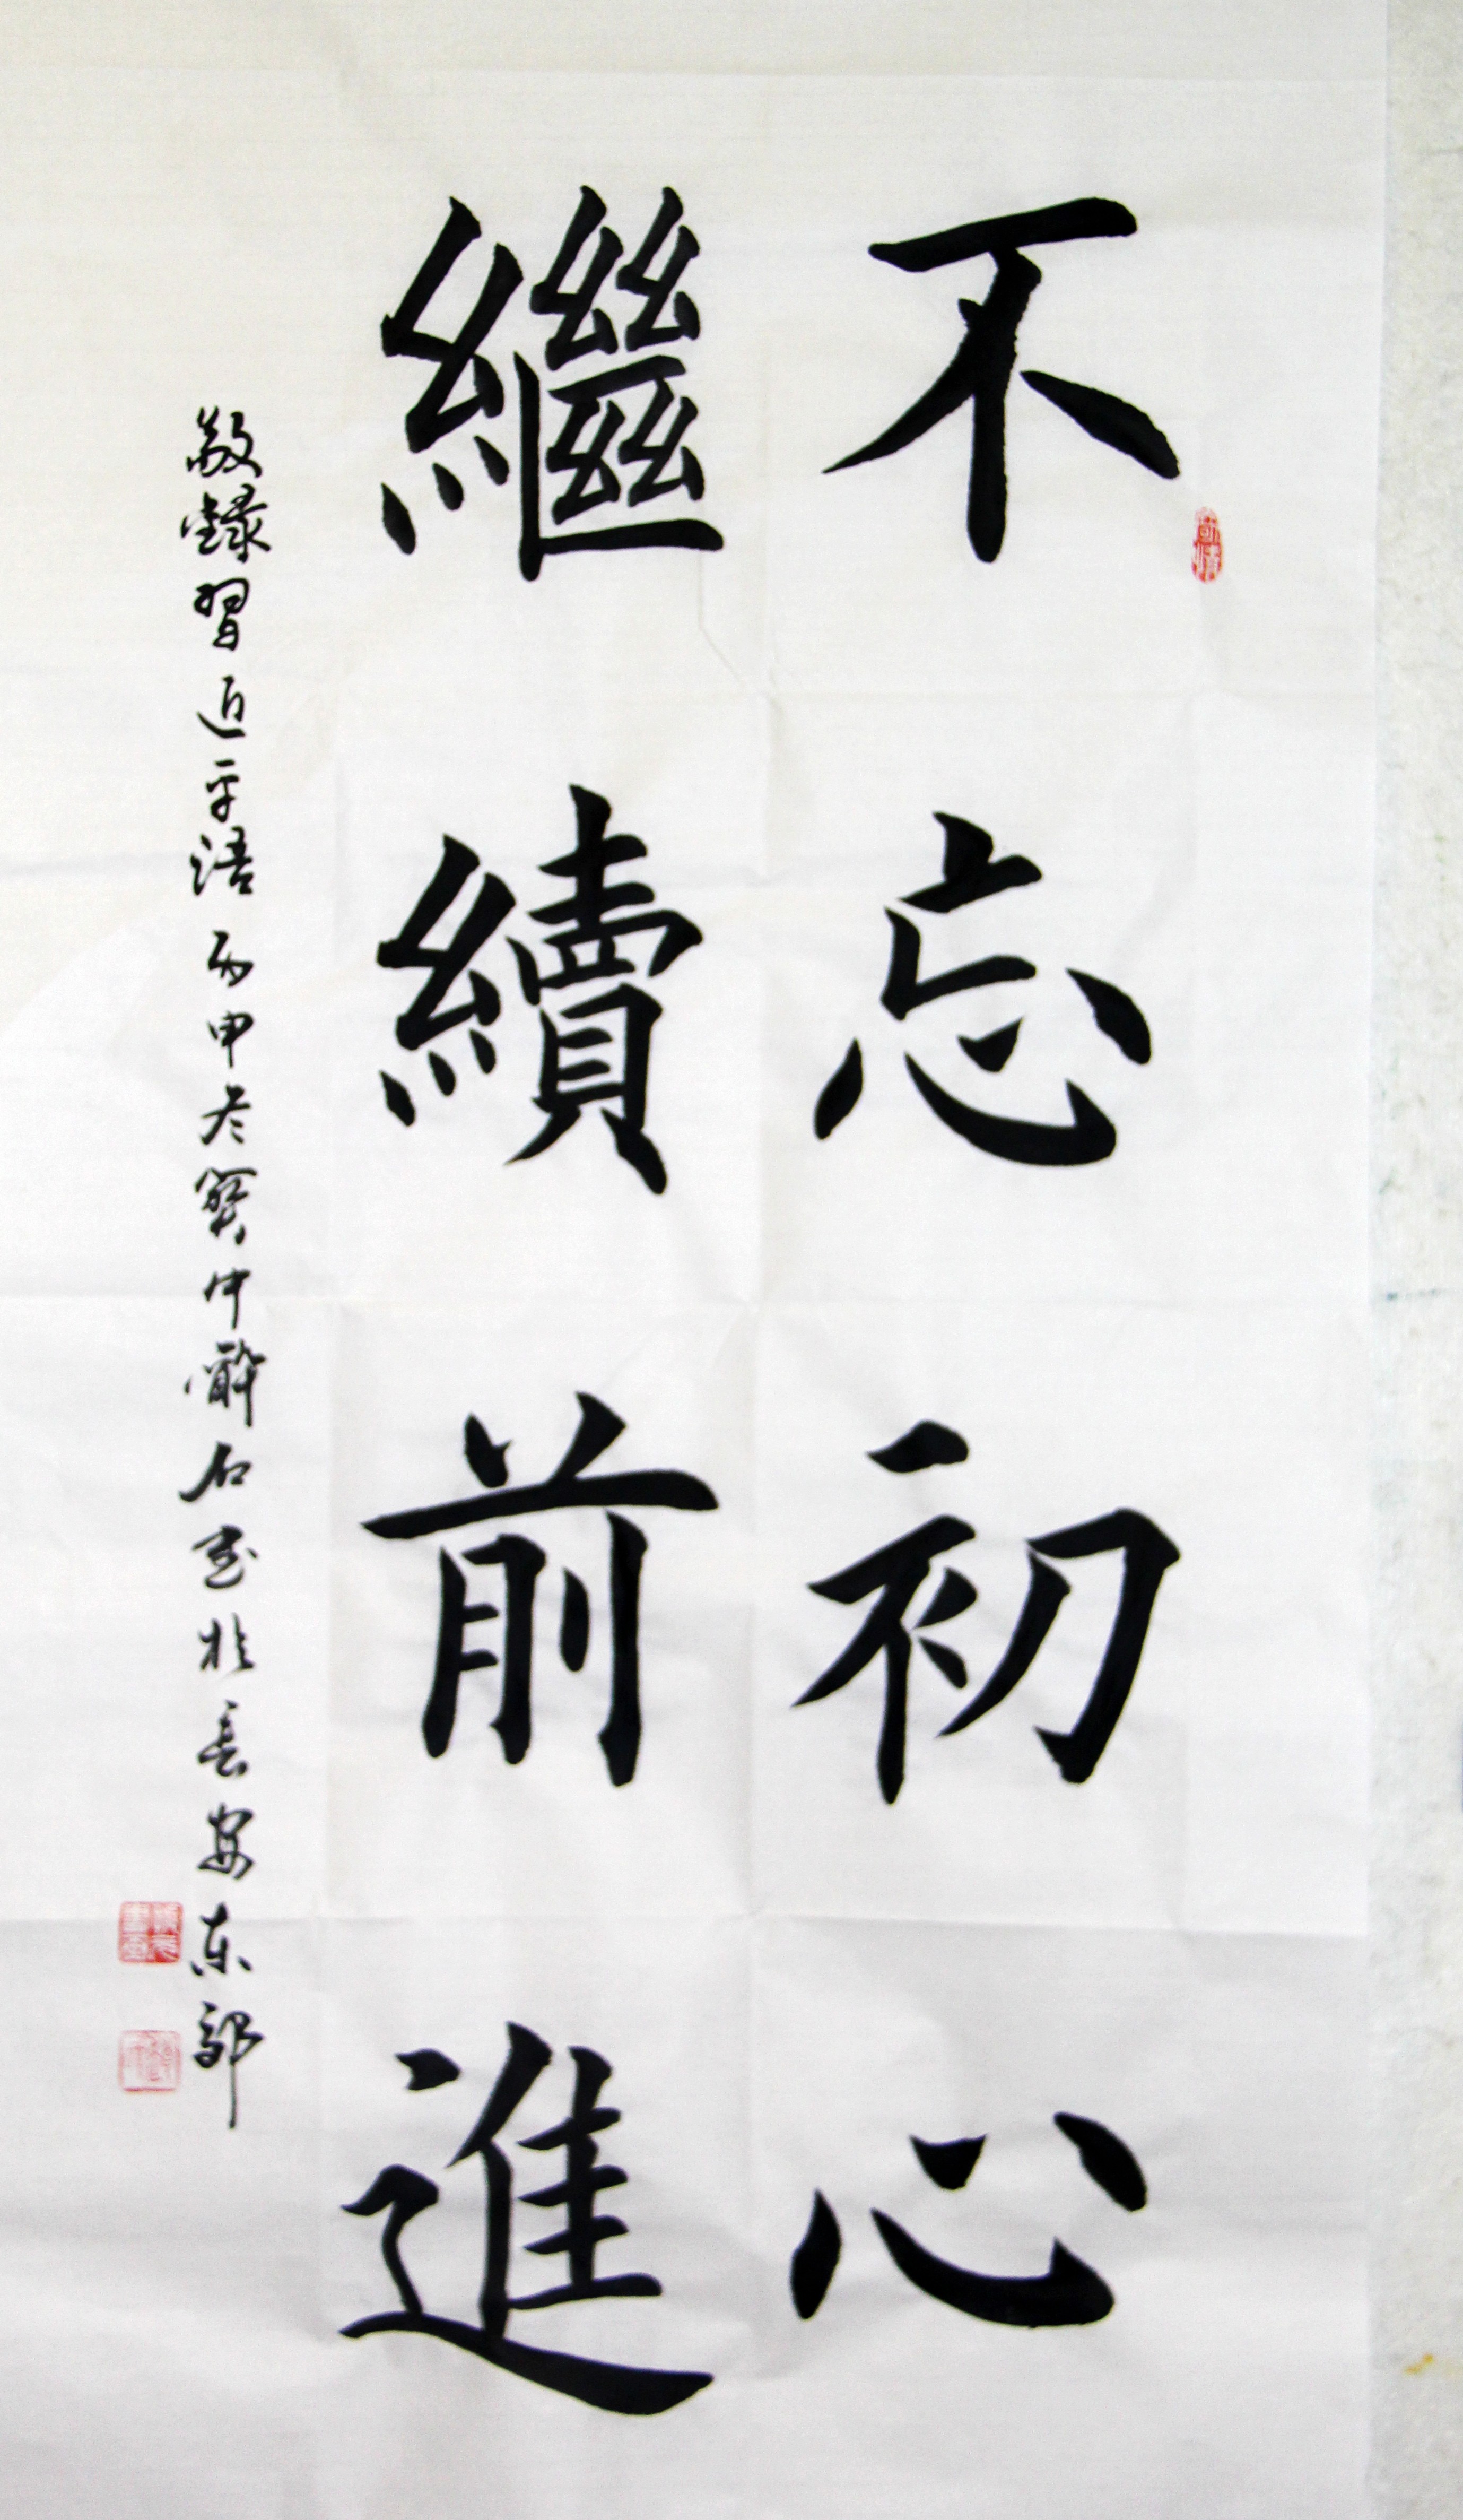 不忘初心
繼續前進
敬錄習近平語丙申冬寶中醉石書於長安東郭